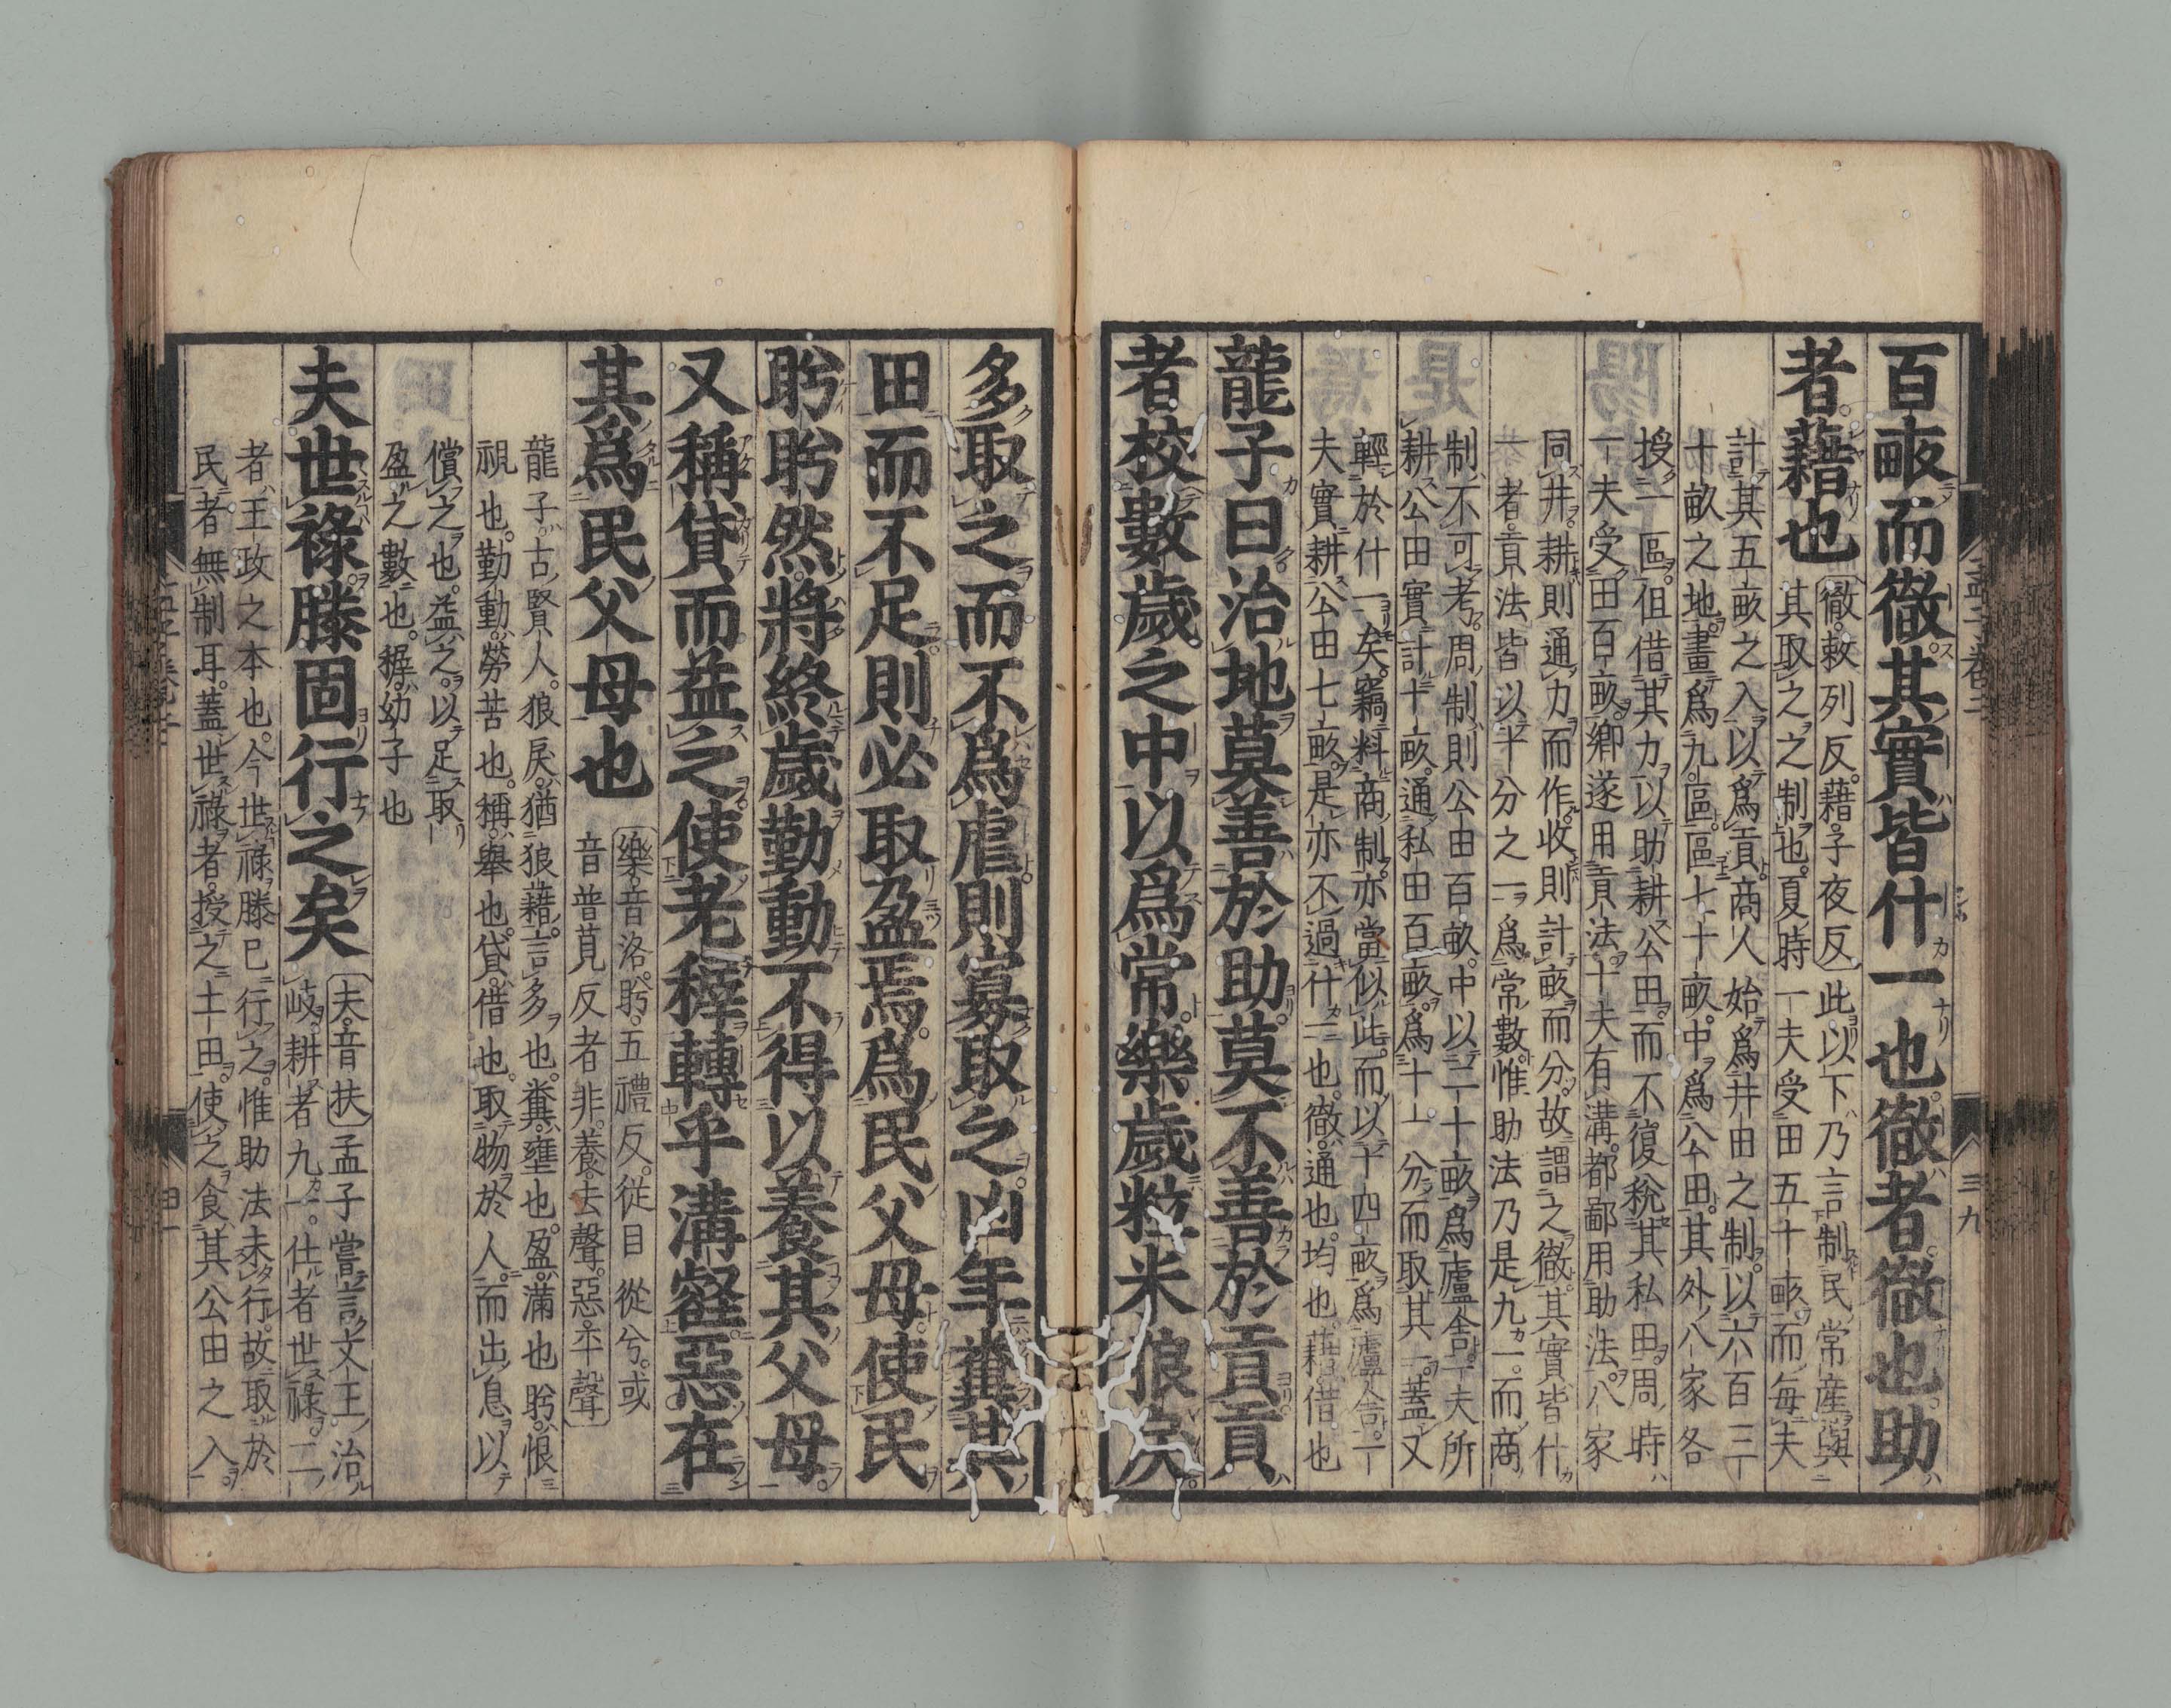 百畝而徹其實皆什一也徹者徹也助
者藉也
徹敕列反藉子夜反此以下乃言制民常産與
其取之之制也夏時一夫受田五十畝而毎夫
計其五畝之入以爲貢商人始爲井田之制以六百三
十畝之地畫爲九區區七十畝中爲公田其外八家各
授一區但借其力以助耕公田而不復稅其私田周時
一夫受田百畝鄉遂用貢法十夫有溝都鄙用助法八家
同井耕則通力而作收則計畝而分故謂之徹其實皆什
一者貢法皆以十分之一爲常數惟助法乃是九一而商
制不可考周制則公田百畝中以二十畝爲廬舍一夫所
耕公田實計十畝通私田百畝爲十一分而取其一蓋又
輕於什一矣竊料商制亦當似此而以十四畝爲廬舍一
夫實耕公田七畝是亦不過什一也徹通也均也藉借也
龍子曰治地莫善於助莫不善於貢貢
者校數歲之中以爲常樂歲粒米狼戾
多取之而不爲虐則寡取之凶年糞其
田而不足則必取盈焉爲民父母使民
盻盻然將終歲勤動不得以養其父母
又稱貸而益之使老稺轉乎溝壑惡在
其爲民父母也
樂音洛盻五禮反從目從兮或
音普莧反者非養去聲惡平聲
龍子古賢人狼戾猶狼藉言多也糞壅也盈滿也盻恨
視也勤動勞苦也稱舉也貸借也取物於人而出息以
償之也益之以足取
盈之數也稺幼子也
夫世祿滕固行之矣
夫音扶孟子嘗言文王治
岐耕者九一仕者世祿二
者王政之本也今世祿滕已行之惟助法未行故取於
民者無制耳蓋世祿者授之土田使之食其公田之入
三九